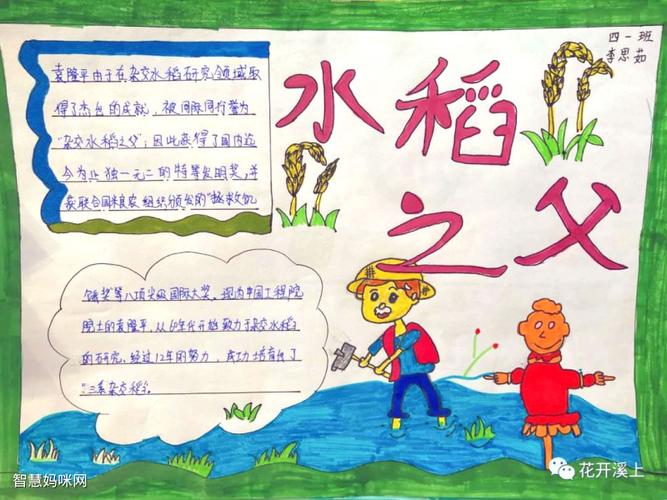 四一班
李思茹
水稻
之父
袁隆平由于在杂交水稻研究领域取
得了杰出的成就，被国际同行誉为
"杂交水稻之父"；因此获得了国内迄
今为止独一无二的特等发明奖，并
获联合国粮农组织颁发的"拯救饥
饿奖等八项尖级国际大奖。现为中国工程院
院士的袁隆平，从60年代开始致力于杂交水稻
的研究，经过12年的努力，成功培育出了
"三系杂交稻。
智慧妈咪网
花开溪上